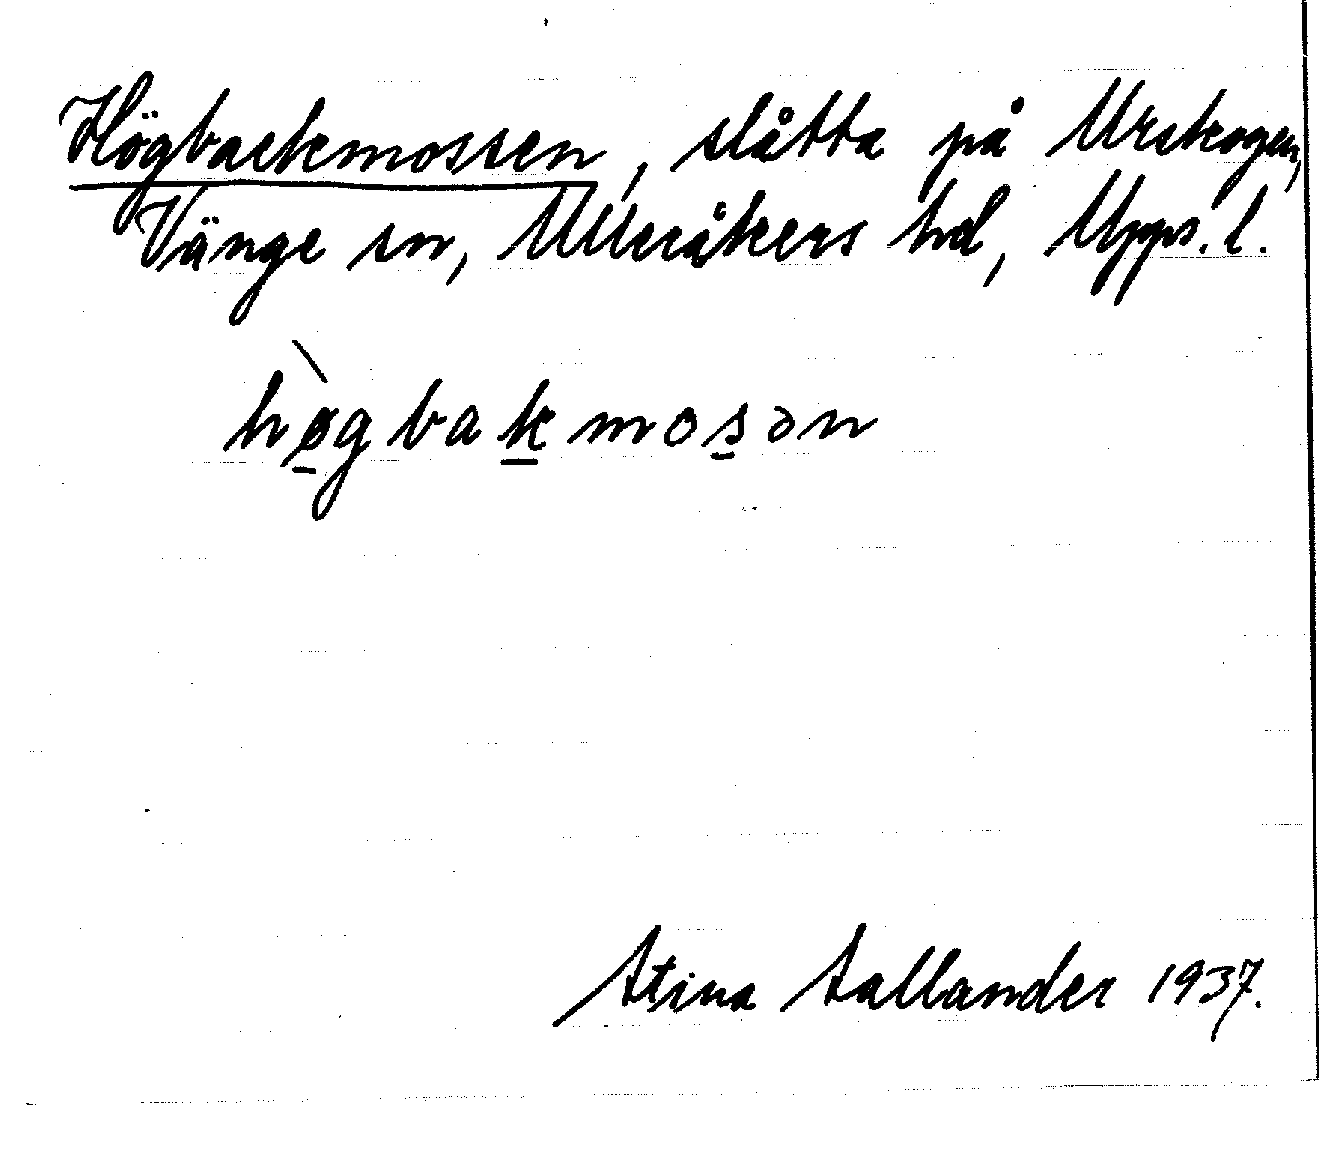 Högbackmossen, slåtta på Urskogen,
Vänge sn, Ulleråkers hd, Upps. l.
hø̱̀gbaḵmos̱ən
Stina Sallander 1937.